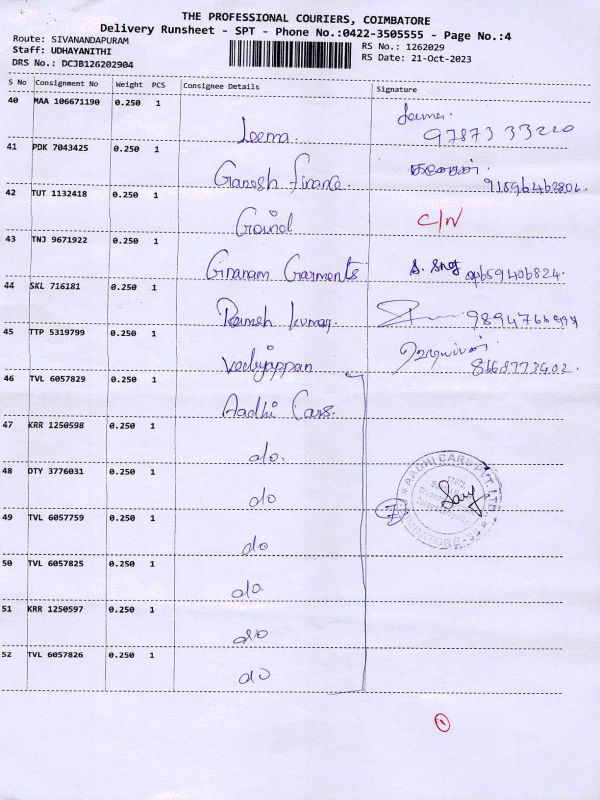 THE PROFESSIONAL COURIERS, COIMBATORE
Delivery Runsheet - SPT - Phone No.:0422-3505555 - Page No.:4
Route: SIVANANDAPURAM
Staff: UDHAYANITHI
DRS No.: DCJB126202904
RS No.: 1262029
RS Date: 21-Oct-2023
S No Consignment No Weight PCS Consignee Details Signature
40 MAA 106671190 0.250 1 Leema. 9787333220
41 PDK 7043425 0.250 1 Ganesh Finance
42 TUT 1132418 0.250 1 Govind C/N
43 TNJ 9671922 0.250 1 Garments 9659406824.
44 SKL 716181 0.250 1 Ramesh kumar
45 TTP 5319799 0.250 1 Vediyappan 8668773402.
46 TVL 6057829 0.250 1 Aadhi Cars.
47 KRR 1250598 0.250 1 do.
48 DTY 3776031 0.250 1 do
49 TVL 6057759 0.250 1 do
50 TVL 6057825 0.250 1 do.
51 KRR 1250597 0.250 1 do
52 TVL 6057826 0.250 1 do
AADHI CARS PVT. LTD
7